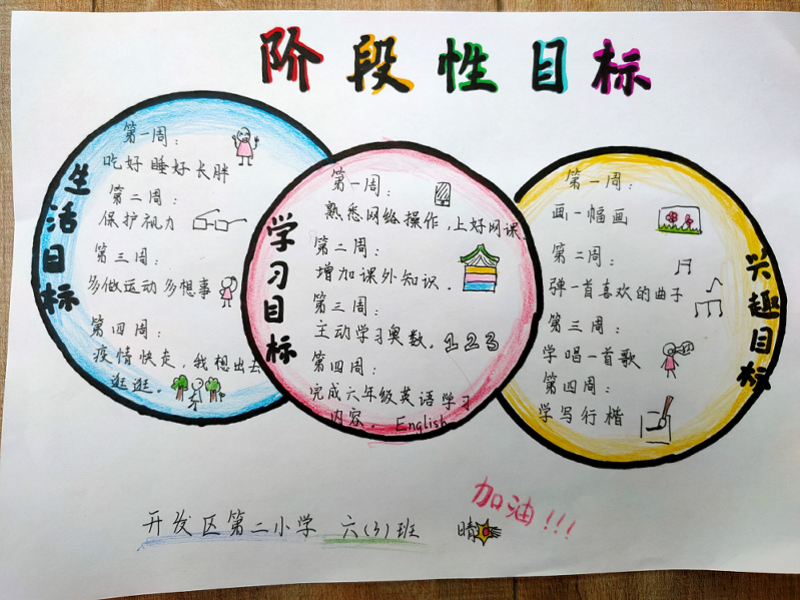 阶段性目标
生活目标
第一周：
吃好睡好长胖
第二周：
保护视力
第三周：
多做运动多想事
第四周：
疫情快走，我想出去
逛逛。
学习目标
第一周：
熟悉网络操作，上好网课。
第二周：
增加课外知识．
第三周：
主动学习奥数。123
第四周：
完成六年级英语学习
内容。English
兴趣目标
第一周：
画一幅画
第二周：
弹一首喜欢的曲子
第三周：
学唱一首歌
第四周：
学写行楷
加油!!!
开发区第二小学 六(3)班 晴